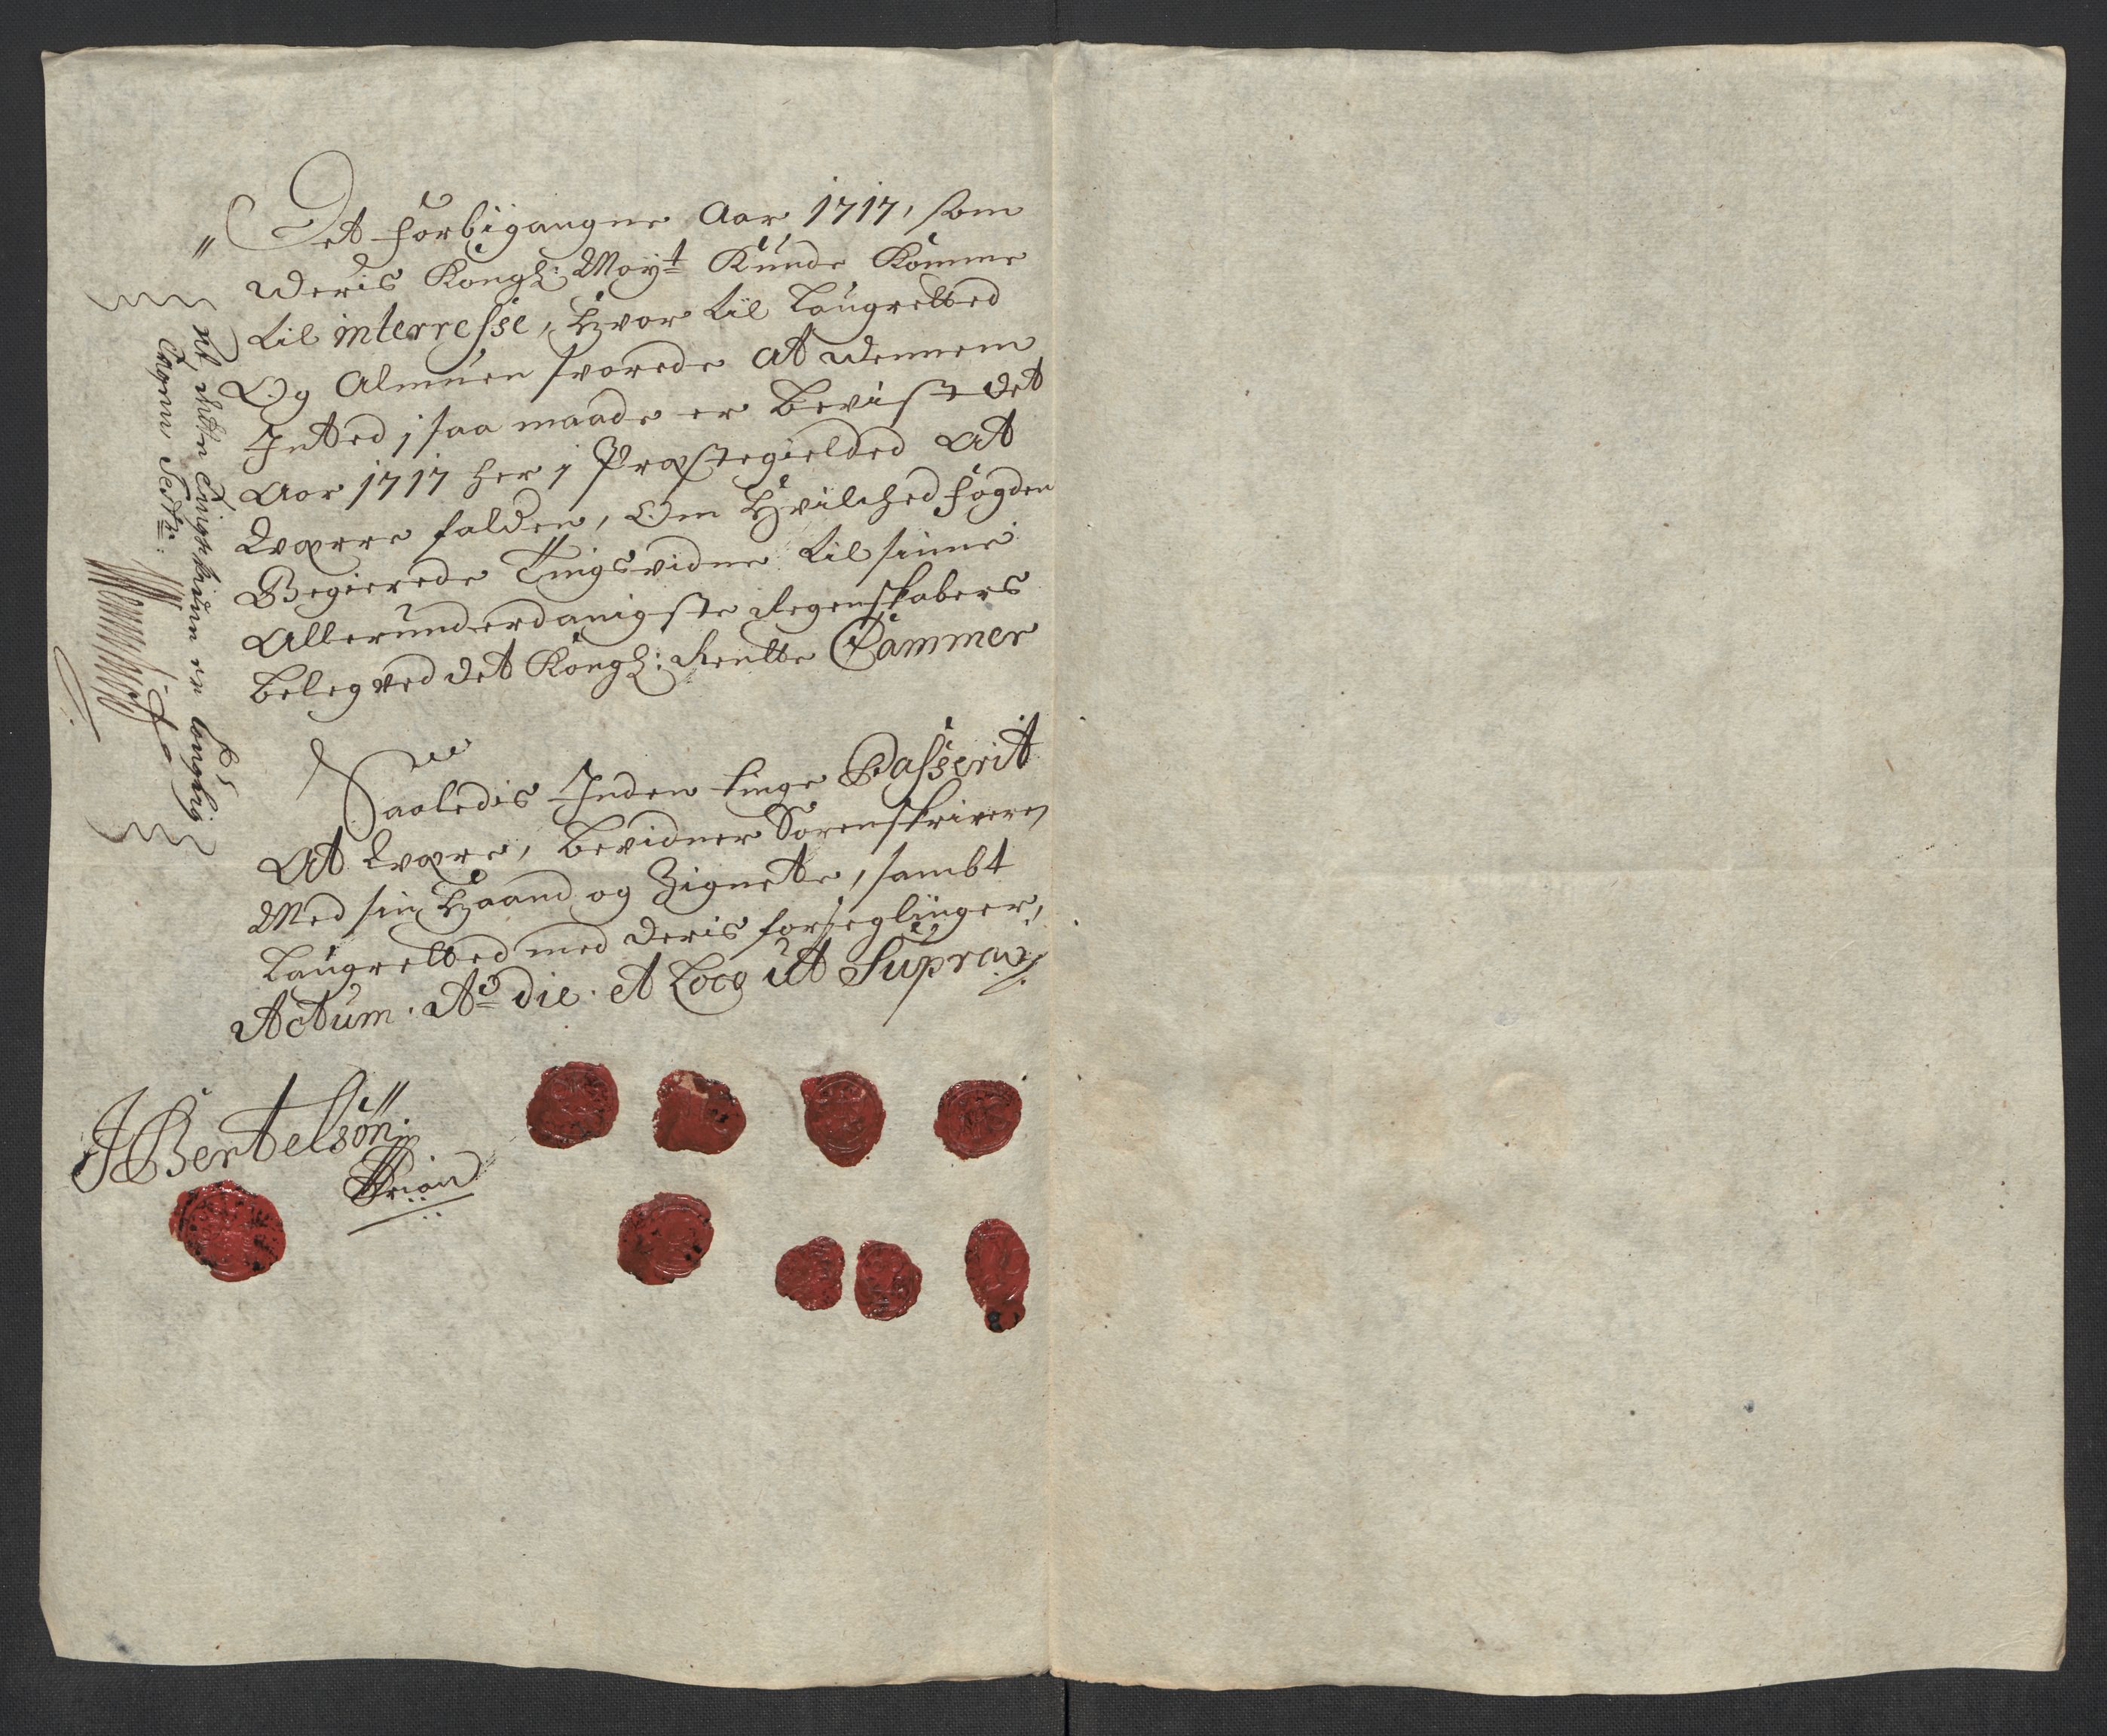 Det forbigangne Aar 1717, som
Deris Kongl: Mayt Kunde Komme
til interresse, Hvor til Laugretted
Og Almuen svorede at dennem
Inted j saa maade er bevist det
Aar 1717 her j Præstegielded at
være falden, Om Hvilched fogden
Begierede Tingsvidne til sinne
Allerunderdanigste Regenskabers
beleg ved det Kongl: Rentte Cammer
Saaledis Inden tinge Passerit
At være, bevidner Sorenskriveren
Med sin Haand og Zignette, sambt
Laugretted med deris forseglinger,
Actum. Ao die. et Loco ut Supra
JBertelsøn
at dette